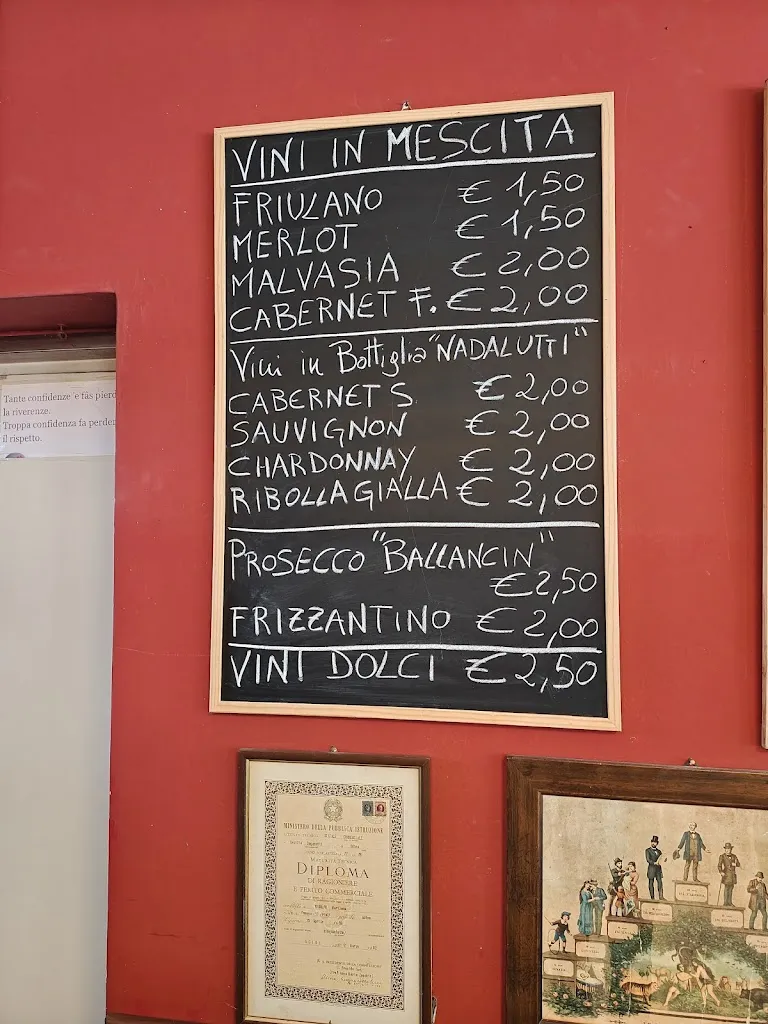 VINI IN MESCITA
FRIULANO € 1,50
MERLOT € 1,50
MALVASIA € 2,00
CABERNET F. € 2,00
Vini in Bottiglia "NADALUTTI"
CABERNET S € 2,00
SAUVIGNON € 2,00
CHARDONNAY € 2,00
RIBOLLA GIALLA € 2,00
PROSECCO "BALLANCIN"
€ 2,50
FRIZZANTINO € 2,00
VINI DOLCI € 2,50
Tante confidenze 'e fâs
la riverenze.
Troppa confidenza fa perder
il rispetto.
MINISTERO DELLA PUBBLICA ISTRUZIONE
DIPLOMA
DI RAGIONIERE
E PERITO COMMERCIALE